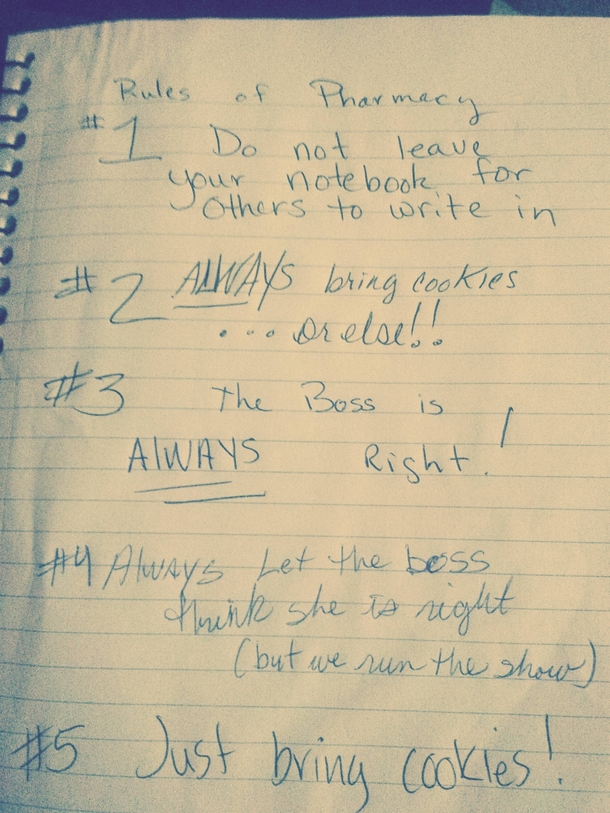 Rules of Pharmacy
#1 Do not leave
your notebook for
others to write in
#2 ALWAYS bring cookies
... or else!!
#3 The Boss is
AlWAYS Right!
#4 Always Let the boss
think she is right
(but we run the show)
#5 Just bring cookies!